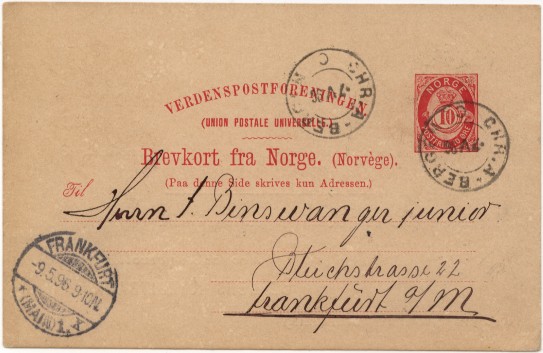 VERDENSPOSTFORENINGEN
(UNION POSTALE UNIVERSELLE.)
Brevkort fra Norge. (Norvège).
(Paa denne Side skrives kun Adressen.)
NORGE
10
CHR.A-BERGEN C
CHR.A-BERGEN
Til
Herrn J. Binswanger junior
Stiichstrasse 22
Frankfurt a/M
FRANKFURT
-9.5.96. 9-10N.
*(MAIN) 1.*